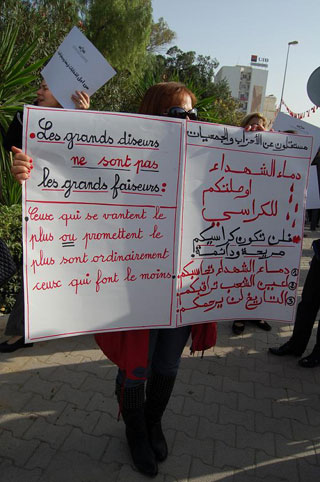 Les grands diseurs
ne sont pas
les grands faiseurs:
Ceux qui se vantent le
plus ou promettent le
plus sont ordinairement
ceux qui font le moins.
مستقلون عن الأحزاب والجمعيات
دماء الشهداء
أوصلتكم
للكراسي
فلن تكون كراسيكم
مريحة ودائمة!
① دماء الشهداء تحاسبكم
② عين الشعب تراقبكم
③ التاريخ لن يرحمكم!